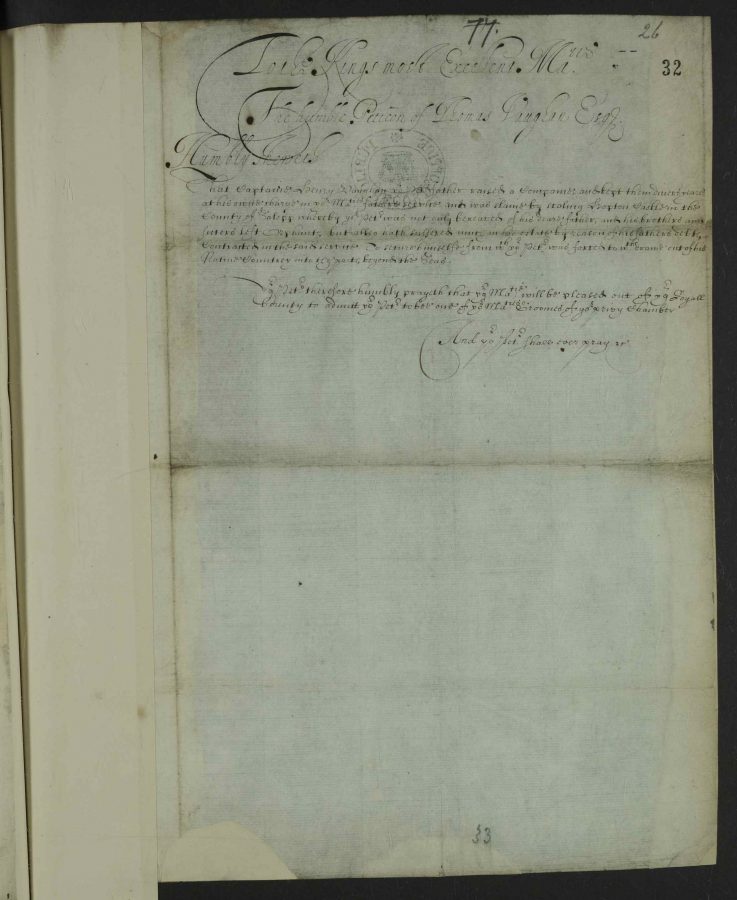 77.
26
32
To the Kings most Excellent Ma.tie
The humble Peticon of Thomas Vaughan Esqr.
Humbly Sheweth
That Captaine Henry Vaughan yor Petrs father raised a Companie and kept them divers yeares
at his owne charge in yor Maties fathers service and was slaine by storming Hopton Castle in the
County of Salopp whereby yor Petr was not only bereaved of his deare father, and his brothers and
sisters left Orphants, but also hath suffered much in his estate by reason of his fathers debts
Contracted in the said service To secure himselfe from wch yor Petr was forced to wthdrawe out of his
Native Countrey into ... parts beyond the Seas
Yor Petr therefore humbly prayeth that yor Matie will be pleased out of yor Royall
bounty to admitt yor Petr to bee one of yor Maties Groomes of yor privy Chamber
And yor Petr shall ever pray &c
33